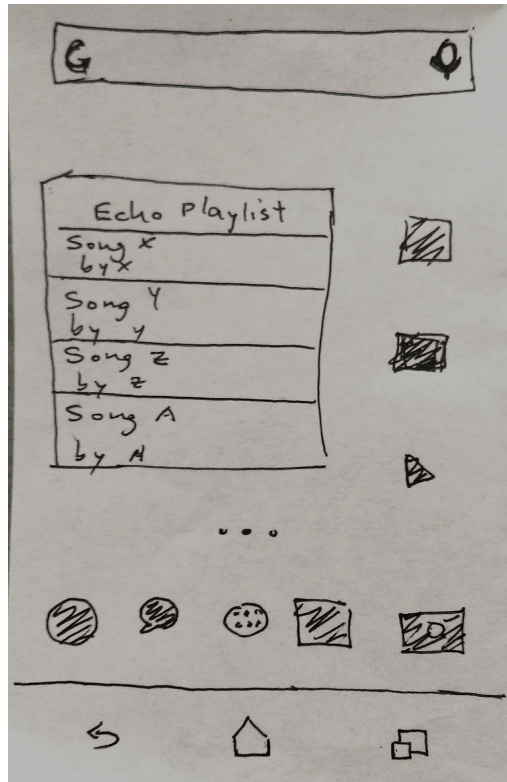 G
Echo Playlist
Song X
by X
Song Y
by y
Song Z
by Z
Song A
by A